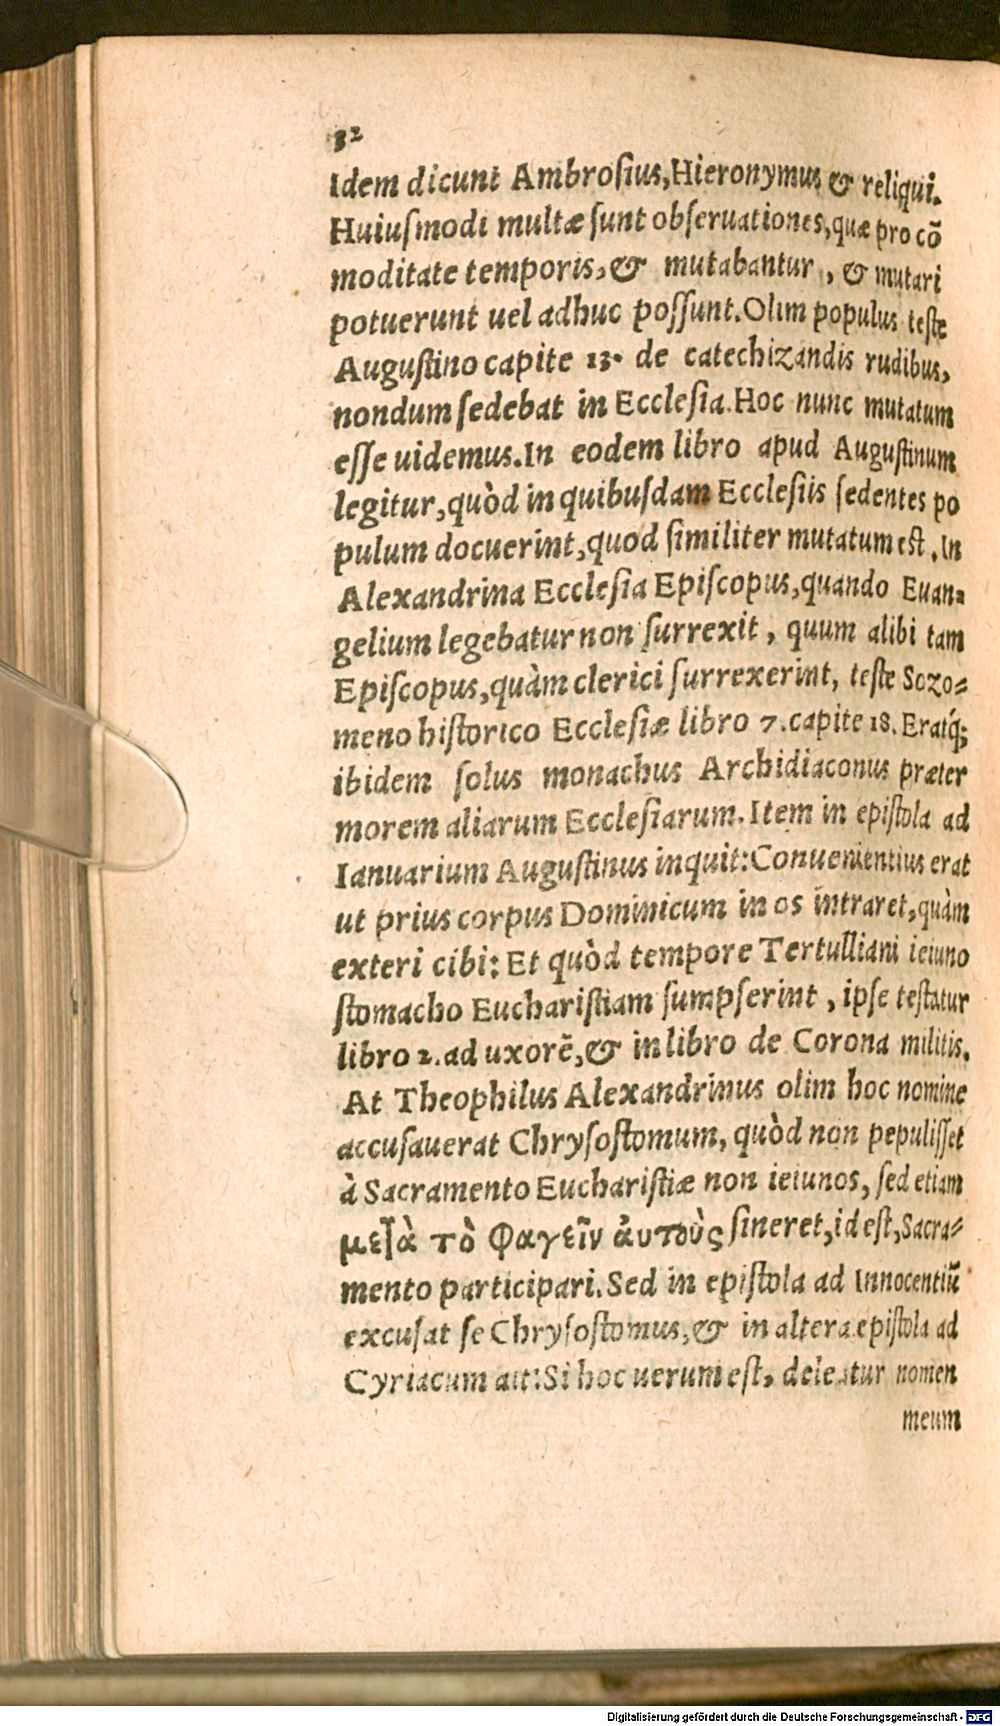 32
Idem dicunt Ambroſius,Hieronymus & reliqui.
Huiuſmodi multæ ſunt obſeruationes,quæ pro cõ
moditate temporis,& mutabantur , & mutari
potuerunt uel adhuc poſſunt.Olim populus teſte
Auguſtino capite 13. de catechizandis rudibus,
nondum ſedebat in Eccleſia.Hoc nunc mutatum
eſſe uidemus.In eodem libro apud Auguſtinum
legitur,quòd in quibuſdam Eccleſiis ſedentes po
pulum docuerint,quod ſimiliter mutatum eſt .In
Alexandrina Eccleſia Epiſcopus,quando Euan-
gelium legebatur non ſurrexit , quum alibi tam
Epiſcopus,quàm clerici ſurrexerint, teſte Sozo-
meno hiſtorico Eccleſiæ libro 7.capite 18. Eratq́;
ibidem ſolus monachus Archidiaconus præter
morem aliarum Eccleſiarum.Item in epiſtola ad
Ianuarium Auguſtinus inquit:Conuenientius erat
ut prius corpus Dominicum in os intraret,quàm
exteri cibi: Et quòd tempore Tertulliani ieiuno
ſtomacho Euchariſtiam ſumpſerint , ipſe teſtatur
libro 2.ad uxorẽ,& in libro de Corona militis.
At Theophilus Alexandrinus olim hoc nomine
accuſauerat Chryſoſtomum, quòd non pepuliſſet
à Sacramento Euchariſtiæ non ieiunos, ſed etiam
μετὰ τὸ φαγεῖν ἀυτοὺς ſineret,id eſt,Sacra-
mento participari.Sed in epiſtola ad Innocentiũ
excuſat ſe Chryſoſtomus,& in altera epiſtola ad
Cyriacum ait:Si hoc uerum eſt, deleatur nomen
meum
Digitalisierung gefördert durch die Deutsche Forschungsgemeinschaft - DFG